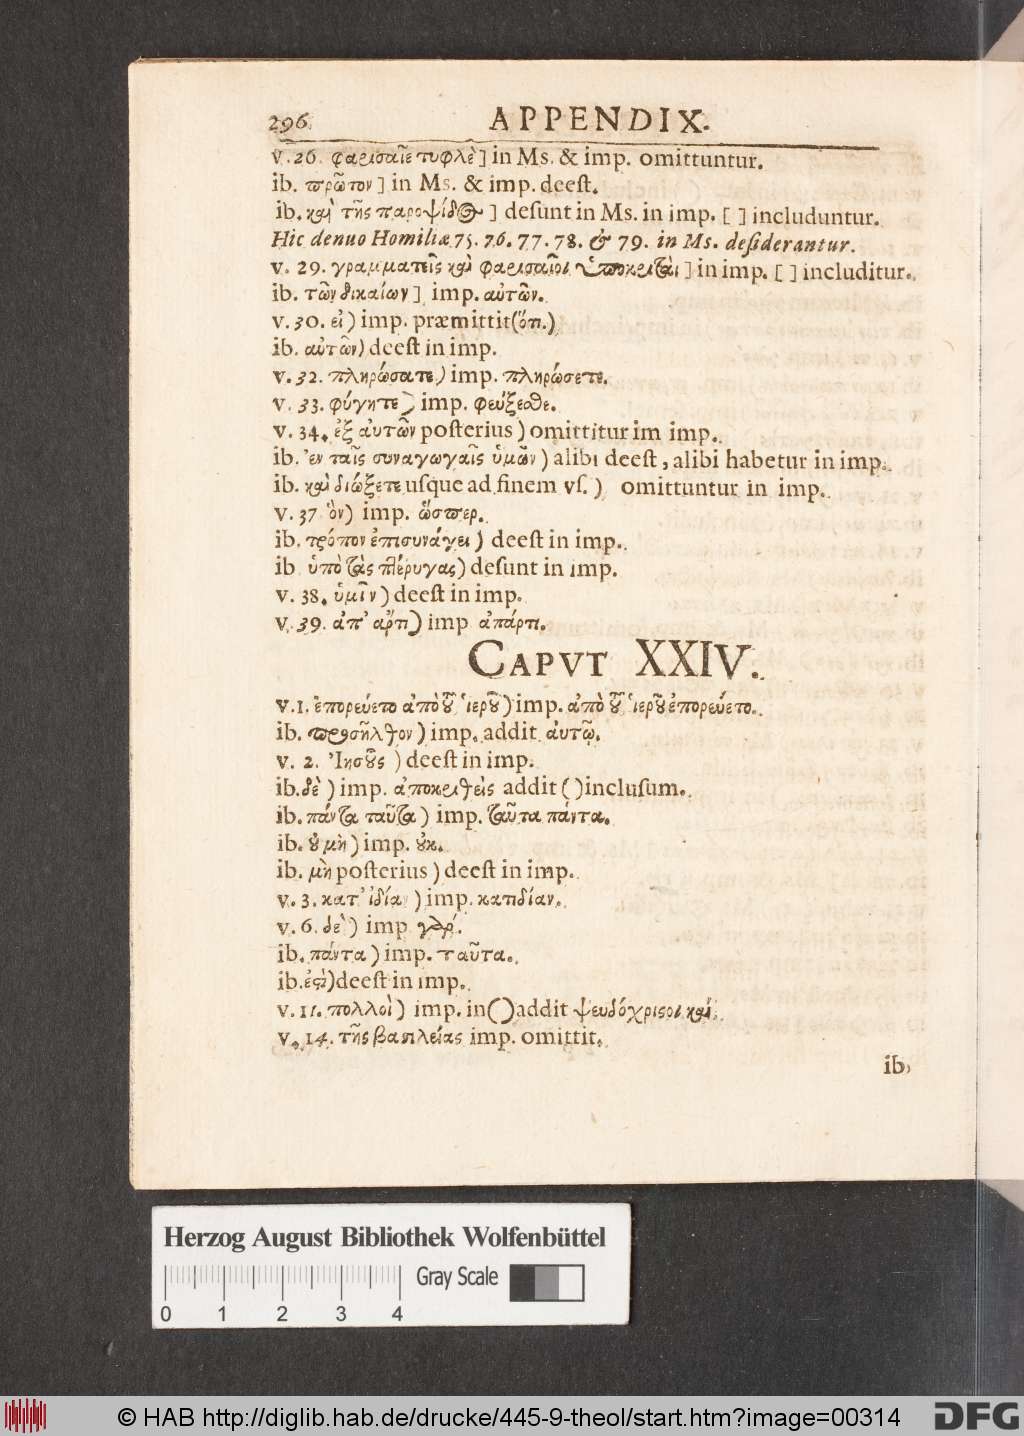 296. APPENDIX.
v. 26. φαρισαῖε τυφλὲ ] in Ms. & imp. omittuntur.
ib. πρῶτον ] in Ms. & imp. deest.
ib. καὶ τῆς παροψίδος ] desunt in Ms. in imp. [ ] includuntur.
Hic denuo Homiliæ 75. 76. 77. 78. & 79. in Ms. desiderantur.
v. 29. γραμματεῖς καὶ φαρισαῖοι ὑποκριταὶ ] in imp. [ ] includitur.
ib. τῶν δικαίων ] imp. αὐτῶν.
v. 30. εἰ ) imp. præmittit (ὅτι.)
ib. αὐτῶν) deest in imp.
v. 32. πληρώσατε ) imp. πληρώσετε.
v. 33. φύγητε ) imp. φεύξεσθε.
v. 34. ἐξ αὐτῶν posterius ) omittitur im imp.
ib. ἐν ταῖς συναγωγαῖς ὑμῶν ) alibi deest, alibi habetur in imp.
ib. καὶ διώξετε usque ad finem vs. ) omittuntur in imp.
v. 37 ὃν) imp. ὥσπερ.
ib. τρόπον ἐπισυνάγει ) deest in imp.
ib ὑπὸ τὰς πτέρυγας) desunt in imp.
v. 38. ὑμῖν ) deest in imp.
v. 39. ἀπ' ἄρτι ) imp ἀπάρτι.
CAPVT XXIV.
v. 1. ἐπορεύετο ἀπὸ τοῦ ἱεροῦ ) imp. ἀπὸ τοῦ ἱεροῦ ἐπορεύετο.
ib. προσῆλθον ) imp. addit αὐτῷ.
v. 2. Ἰησοῦς ) deest in imp.
ib. δὲ ) imp. ἀποκριθεὶς addit ( ) inclusum.
ib. πάντα ταῦτα ) imp. ταῦτα πάντα.
ib. οὐ μὴ ) imp. οὐκ.
ib. μὴ posterius ) deest in imp.
v. 3. κατ' ἰδίαν ) imp. κατιδίαν.
v. 6. δὲ ) imp γάρ.
ib. πάντα ) imp. ταῦτα.
ib. ἐστὶ) deest in imp.
v. 11. πολλοὶ ) imp. in ( ) addit ψευδόχριστοι καὶ.
v. 14. τῆς βασιλείας imp. omittit.
ib.
Herzog August Bibliothek Wolfenbüttel
Gray Scale
0 1 2 3 4
© HAB http://diglib.hab.de/drucke/445-9-theol/start.htm?image=00314
DFG